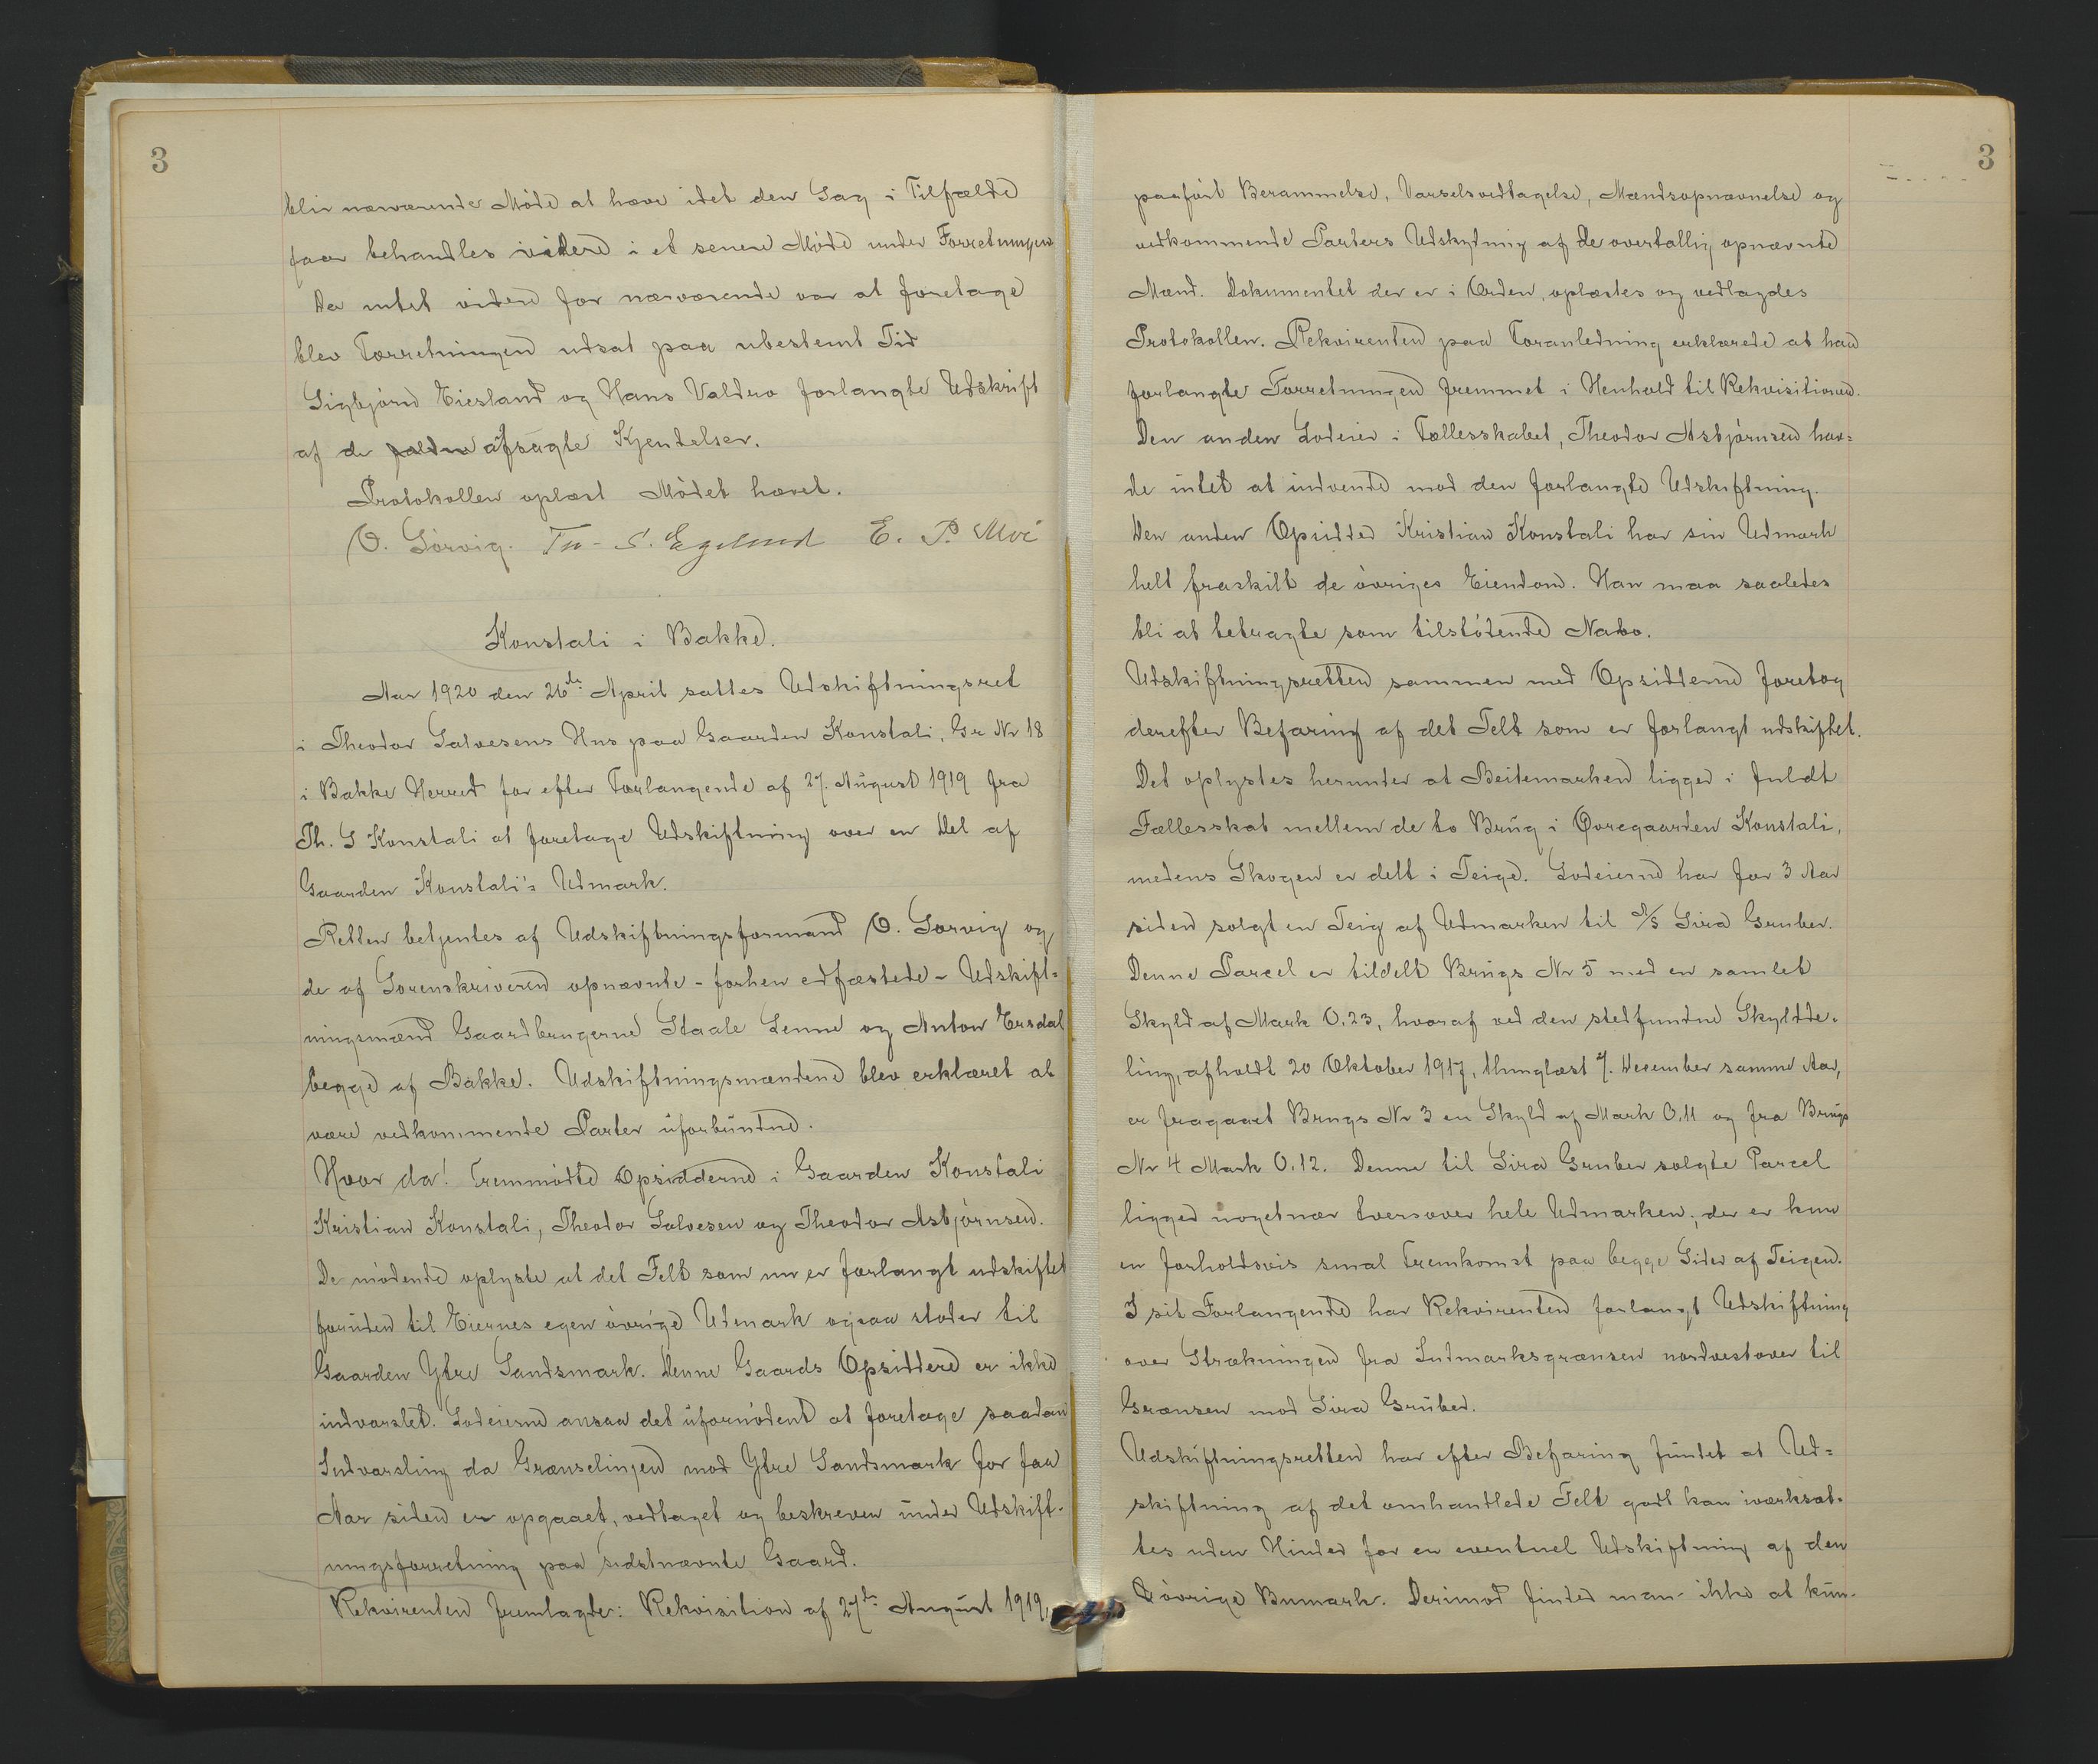 3
blir nærværende Møde at hæve idet den Sag i Tilfælde
faar behandles videre i et senere Møde under Forretningen
Da intet videre for nærværende var at foretage
blev Forretningen udsat paa ubestemt Tid
Sigbjørn Eiesland og Hans Valdro forlangte Udskrift
af de afsagte Kjendelser.
Protokollen oplæst Mødet hævet.
O. Sørvig. S. Egeland E. P. Moi
Konstali i Bakke.
Aar 1920 den 26de April sattes Udskiftningsret
i Theodor Salvesens Hus paa Gaarden Konstali, Gr Nr 18
i Bakke Herred for efter Forlangende af 27. August 1919 fra
Th. S Konstali at foretage Udskiftning over en Del af
Gaarden Konstali's Udmark.
Retten betjentes af Udskiftningsformand O. Sørvig og
de af Sorenskriveren opnævnte - forhen edfæstede - Udskift=
ningsmænd Gaardbrugerne Staale Lenne og Anton Ersdal
begge af Bakke. Udskiftningsmændene blev erklæret at
være vedkommende Parter uforbundne.
Hvor da! Fremmødte Opsidderne i Gaarden Konstali
Kristian Konstali, Theodor Salvesen og Theodor Asbjørnsen.
De mødende oplyste at det Felt som nu er forlangt udskiftet
foruden til Eiernes egen øvrige Udmark ogsaa støder til
Gaarden Ytre Sandsmark. Denne Gaards Opsiddere er ikke
indvarslet. Lodeierne ansaa det ufornødent at foretage saadan
Indvarsling da Grænselinjen mod Ytre Sandsmark for faa
Aar siden er opgaaet, vedtaget og beskreven under Udskift-
ningsforretning paa sidstnævnte Gaard.
Rekvirenten fremlagde: Rekvisition af 27de August 1919,
3
paaført Berammelse, Varselsvedtagelse, Mændsopnævnelse og
vedkommende Parters Udskydning af de overtallig opnævnte
Mænd. Dokumentet der er i Orden, oplæstes og vedlagdes
Protokollen. Rekvirenten paa Foranledning erklærede at han
forlangte Forretningen fremmet i Henhold til Rekvisitionen.
Den anden Lodeier i Fællesskabet, Theodor Asbjørnsen hav=
de intet at indvende mod den forlangte Udskiftning.
Den anden Opsidder Kristian Konstali har sin Udmark
helt fraskilt de øvriges Eiendom. Han maa saaledes
bli at betragte som tilstødende Nabo.
Udskiftningsretten sammen med Opsidderne foretog
derefter Befaring af det Felt som er forlangt udskiftet.
Det oplystes herunder at Beitemarken ligger i fuldt
Fællesskab mellem de to Brug i Øvregaarden Konstali,
medens Skogen er delt i Teige. Lodeierne har for 3 Aar
siden solgt en Teig af Udmarken til A/S Sira Gruber.
Denne Parcel er tildelt Brugs Nr 5 med en samlet
Skyld af Mark 0.23, hvoraf ved den stedfundne Skyldde=
ling, afholdt 20 Oktober 1917, thinglæst 7. December samme Aar,
er fragaaet Brugs Nr 3 en Skyld af Mark 0.11 og fra Brugs
Nr 4 Mark 0.12. Denne til Sira Gruber solgte Parcel
ligger nogetnær tversover hele Udmarken; der er kun
en forholdsvis smal Fremkomst paa begge Sider af Teigen.
I sit Forlangende har Rekvirenten forlangt Udskiftning
over Strækningen fra Indmarksgrænsen nordvestover til
Grænsen mod Sira Gruber.
Udskiftningsretten har efter Befaring fundet at Ud=
skiftning af det omhandlede Felt godt kan iværksæt-
tes uden Hinder for en eventuel Udskiftning af den
øvrige Bumark. Derimod finder man ikke at kun-